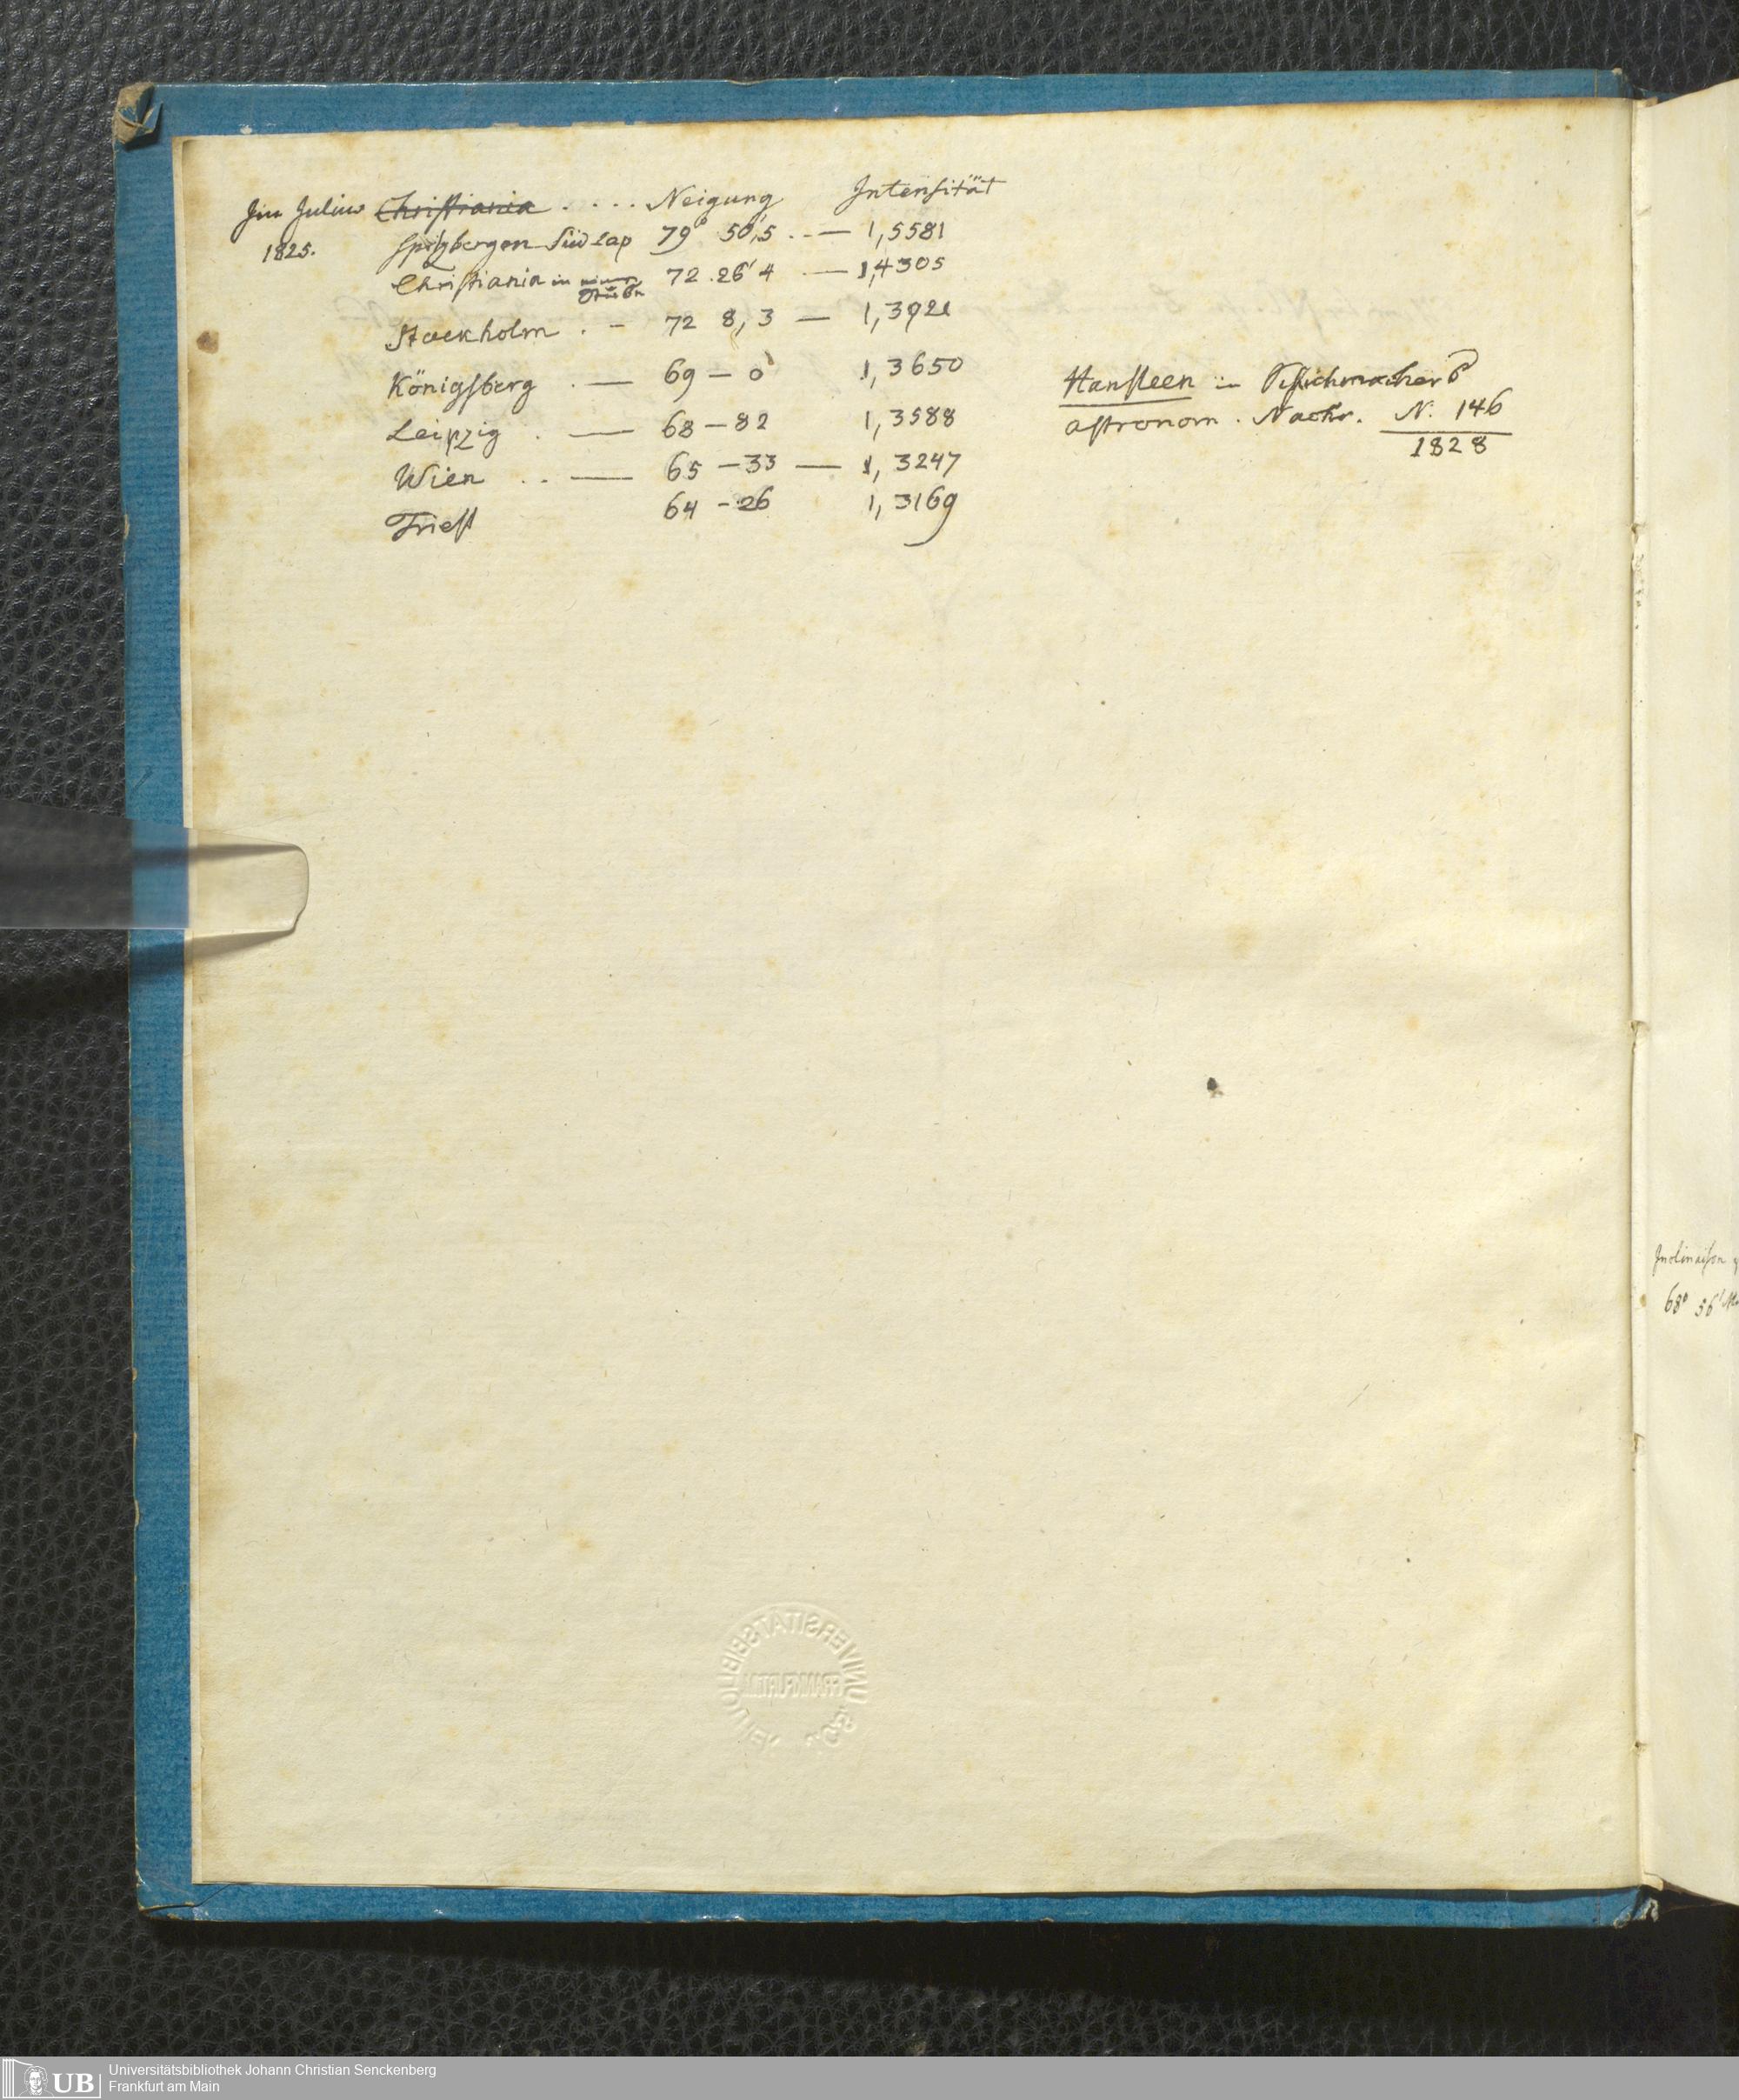 Im Julius Christiania .... Neigung Intensität
1825. Spitzbergen Südcap 79° 50,'5 ..— 1,5581
Christiania in 72.26'4 — 1,4305
Stockholm . – 72 8,3 — 1,3921
Königsberg . — 69 – 0' 1,3650
Leipzig . — 68 – 82 1,3588
Wien .. — 65 – 33 — 1,3247
Triest 64 – 26 1,3169
Hansteen in
astronom. Nachr. N. 146
1828
Inclinaison
68° 36'
UNIVERSITÄTSBIBLIOTHEK
FRANKFURT/M.
UB
Universitätsbibliothek Johann Christian Senckenberg
Frankfurt am Main